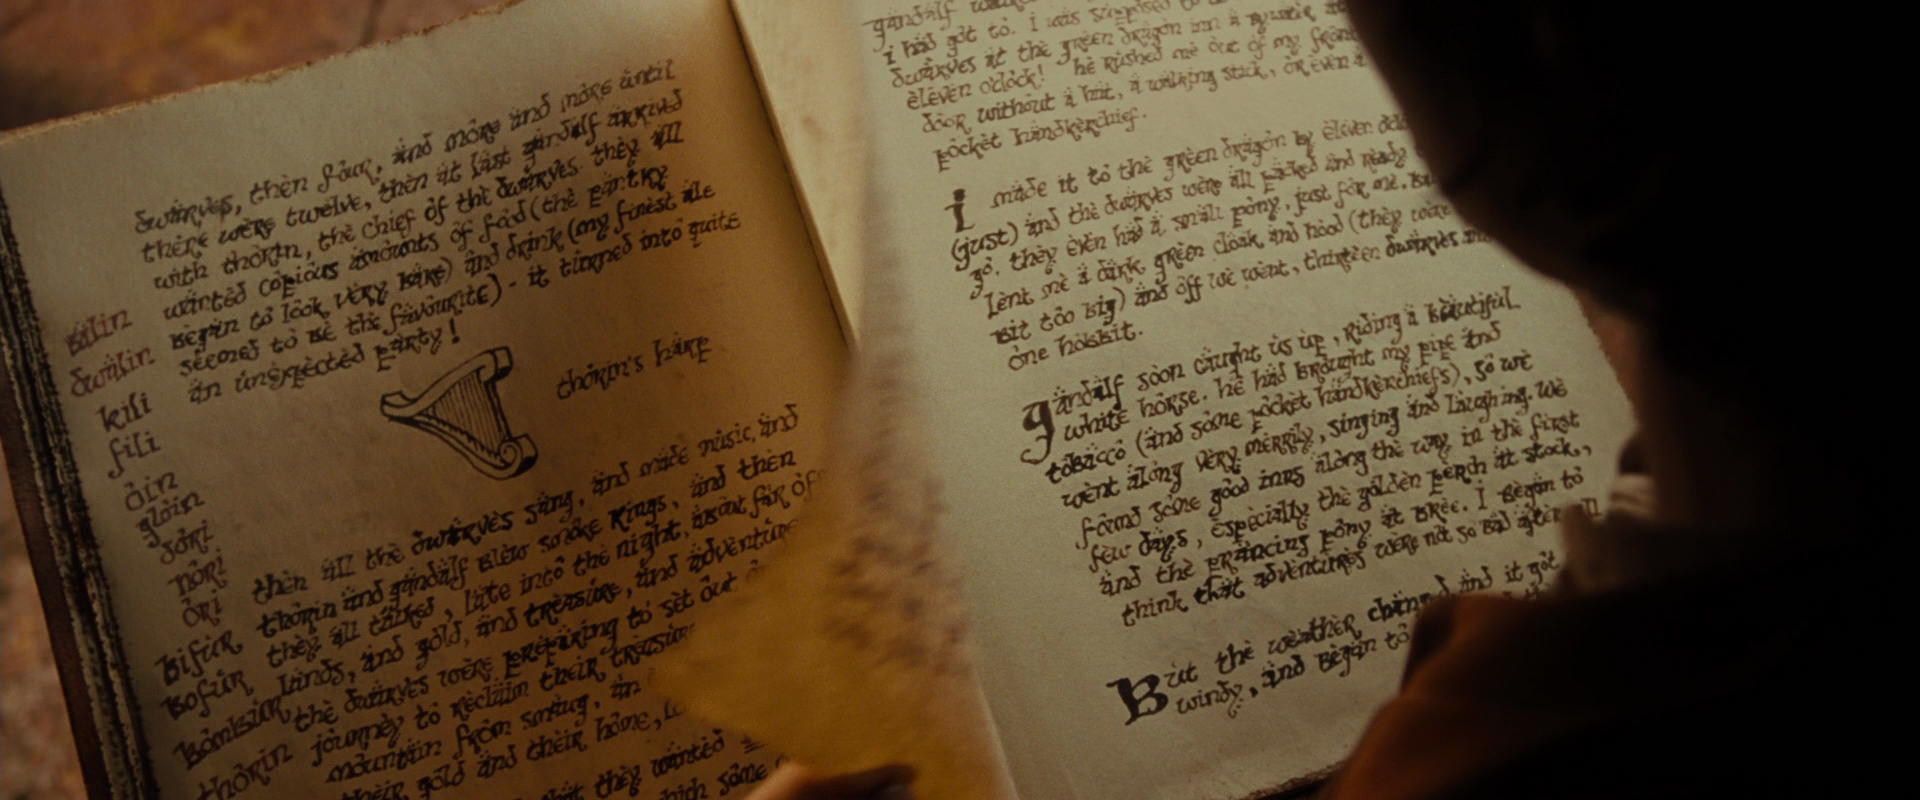 dwarves, then four, and more and more until
there were twelve, then at last gandalf arrived
with thorin, the chief of the dwarves. they all
wanted copious amounts of food (the pantry
began to look very bare) and drink (my finest ale
seemed to be the favourite) - it turned into quite
an unexpected party!
balin
dwalin
kili
fili
oin
gloin
dori
nori
ori
bifur
bofur
bombur
thorin
thorin's harp
then all the dwarves sang, and made music, and
thorin and gandalf blew smoke rings, and then
they all talked, late into the night, about far off
lands, and gold, and treasure, and adventure
the dwarves were preparing to set out
journey to reclaim their treasure
mountain from smaug, an
their gold and their home,
they wanted
some
gandalf
i had got to. I was supposed to
dwarves at the green dragon inn a
eleven o'clock! he rushed me out of my front
door without a hat, a walking stick, or even a
pocket handkerchief.
i made it to the green dragon by eleven
(just) and the dwarves were all packed and ready
go. they even had a small pony, just for me.
lent me a dark green cloak and hood (they were
bit too big) and off we went, thirteen dwarves
one hobbit.
gandalf soon caught us up, riding a beautiful
white horse. he had brought my pipe and
tobacco (and some pocket handkerchiefs), so we
went along very merrily, singing and laughing. we
found some good inns along the way in the first
few days, especially the golden perch at stock,
and the prancing pony at bree. I began to
think that adventures were not so bad after all
But the weather changed and it got
windy, and began to